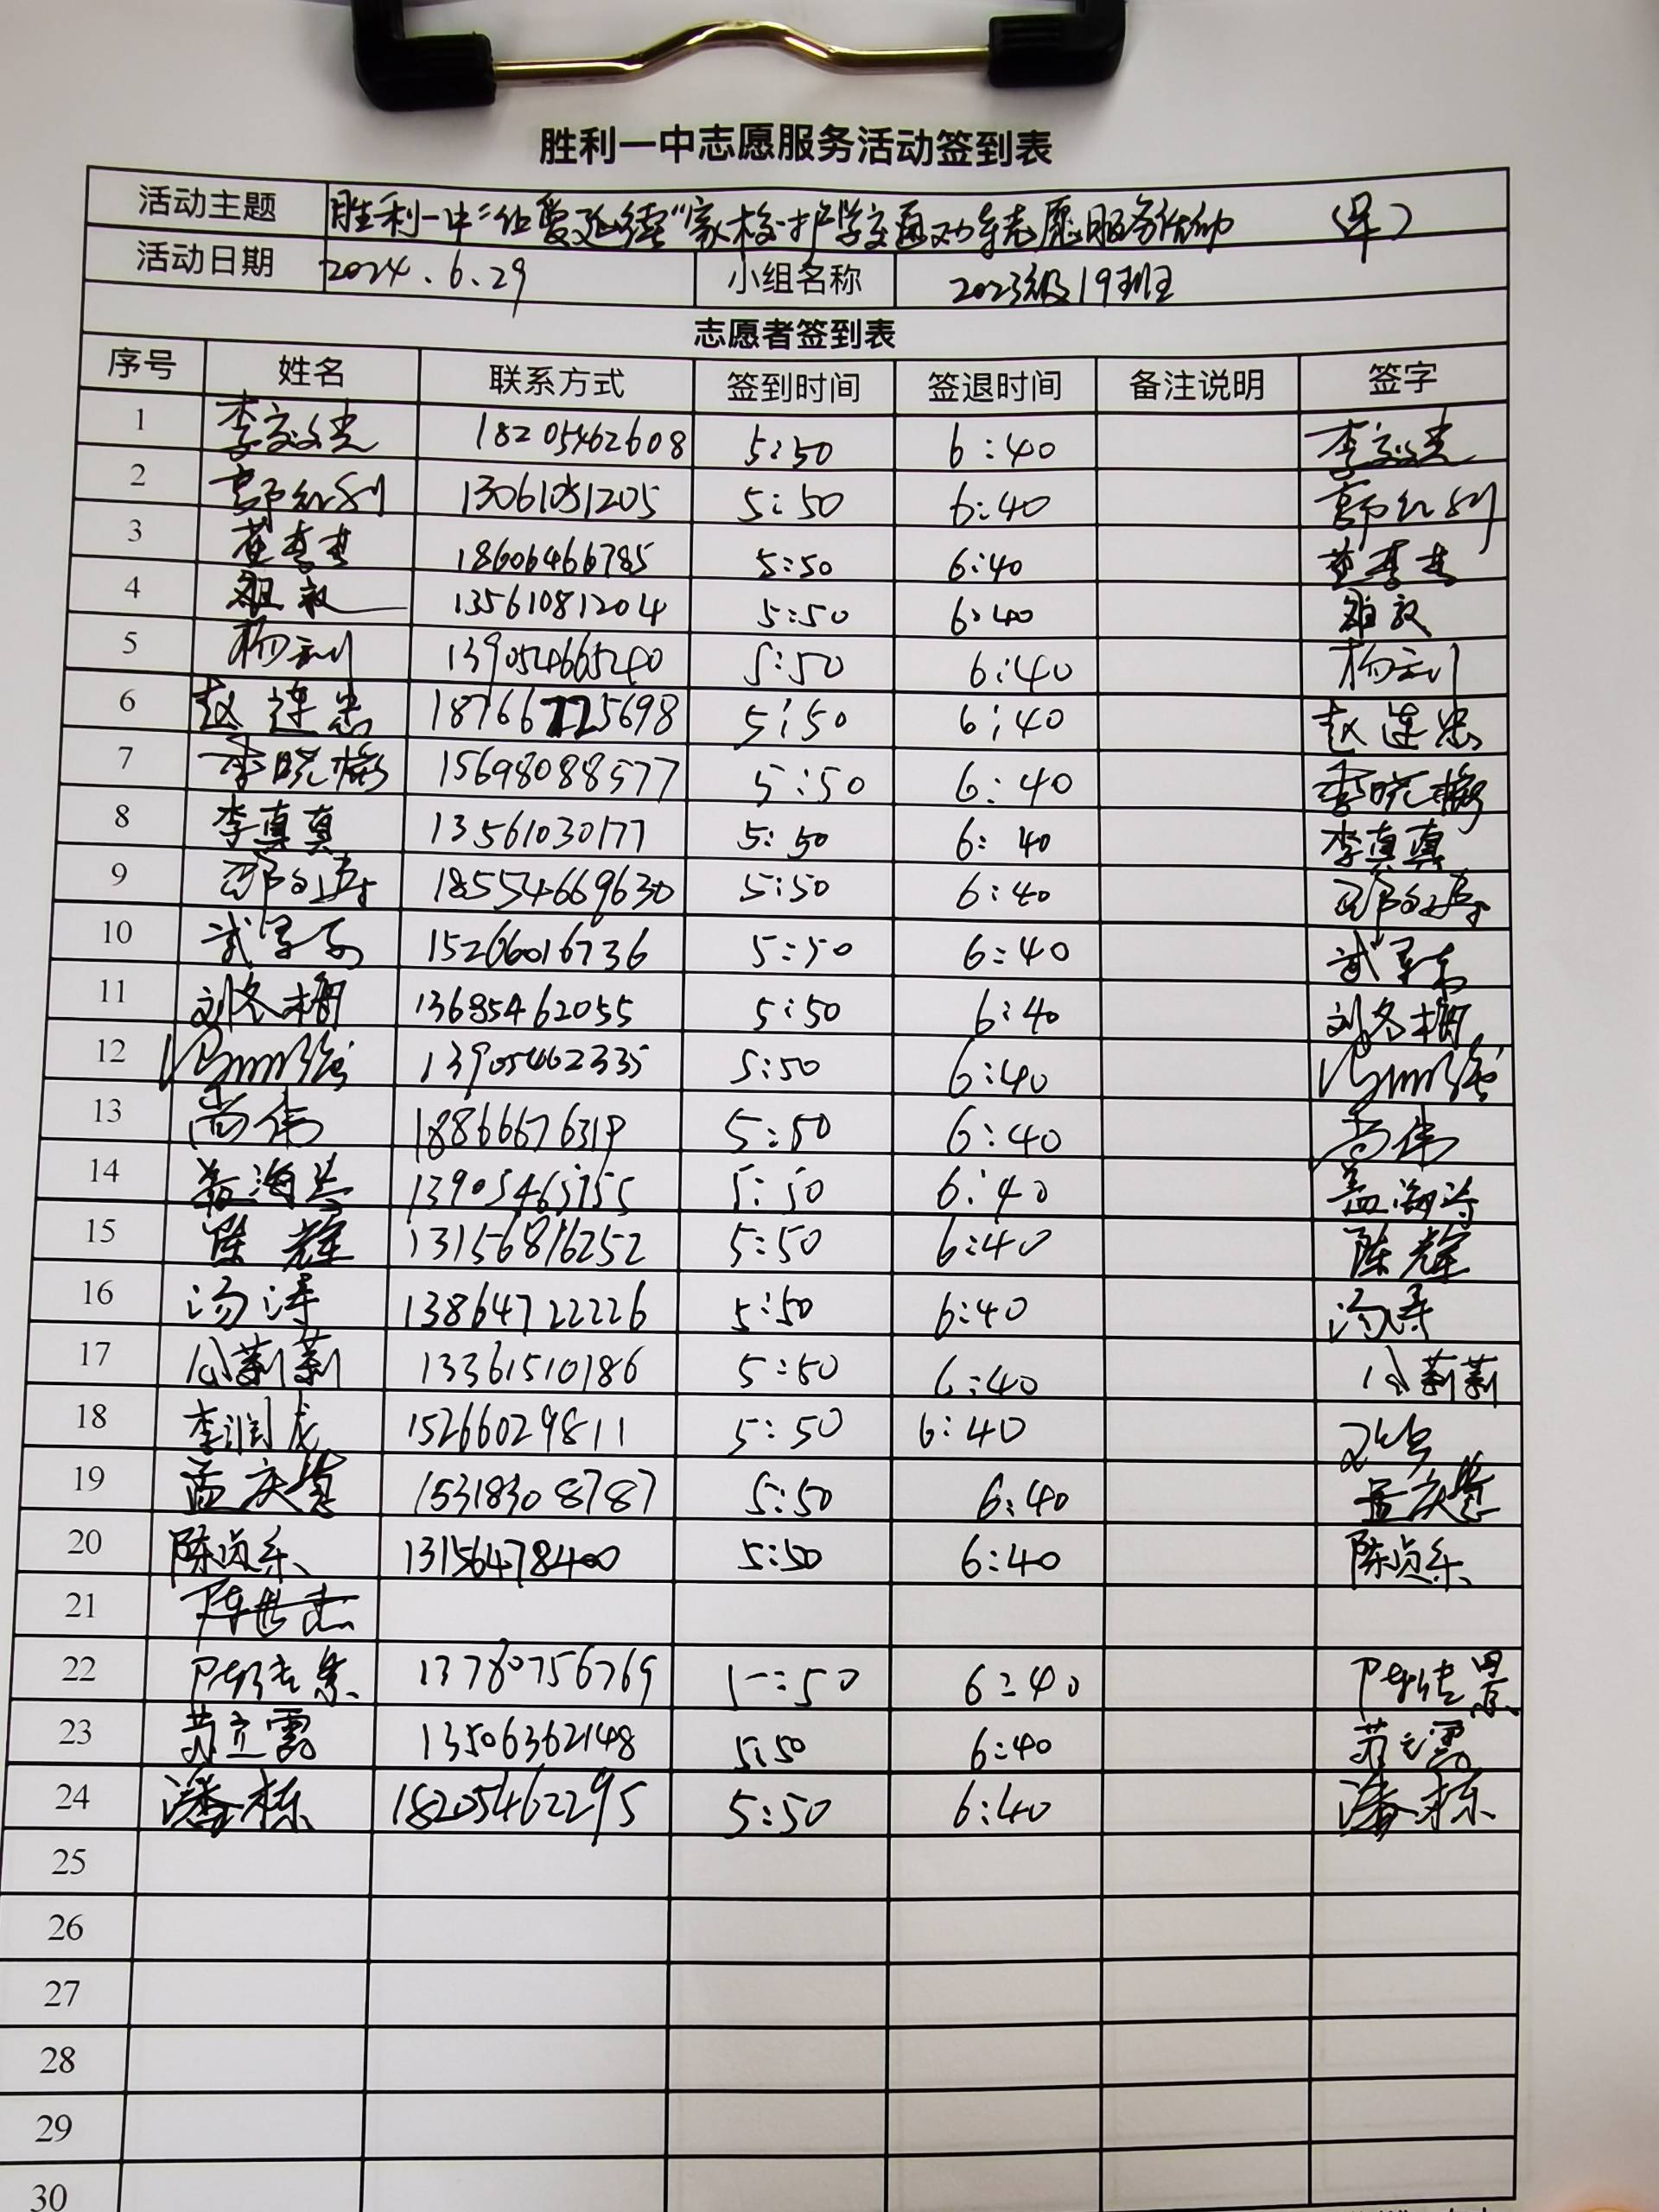 胜利一中志愿服务活动签到表
活动主题 胜利一中"让爱延续"家校护学交通劝导志愿服务活动 (早)
活动日期 2024.6.29 小组名称 2023级19班
志愿者签到表
序号 姓名 联系方式 签到时间 签退时间 备注说明 签字
1 18205462608 5:50 6:40
2 郭红利 13061051205 5:50 6:40 郭红利
3 18606466785 5:50 6:40
4 13561081204 5:50 6:40
5 13905466540 5:50 6:40
6 赵连忠 5:50 6:40 赵连忠
7 李晓梅 15698088577 5:50 6:40 李晓梅
8 李真真 13561030177 5:50 6:40 李真真
9 18554669630 5:50 6:40
10 15266016736 5:50 6:40
11 刘冬梅 13685462055 5:50 6:40 刘冬梅
12 13905462335 5:50 6:40
13 尚伟 5:50 6:40 尚伟
14 13905465755 5:50 6:40
15 陈辉 13156816252 5:50 6:40 陈辉
16 汤涛 13864722226 5:50 6:40 汤涛
17 公莉莉 13361510186 5:50 6:40 公莉莉
18 15266029811 5:50 6:40
19 15318308787 5:50 6:40
20 陈贞东 13156478400 5:50 6:40 陈贞东
21
22 13780756769 5:50 6:40
23 苏立霞 13506362148 5:50 6:40 苏立霞
24 潘栋 18205462295 5:50 6:40 潘栋
25
26
27
28
29
30